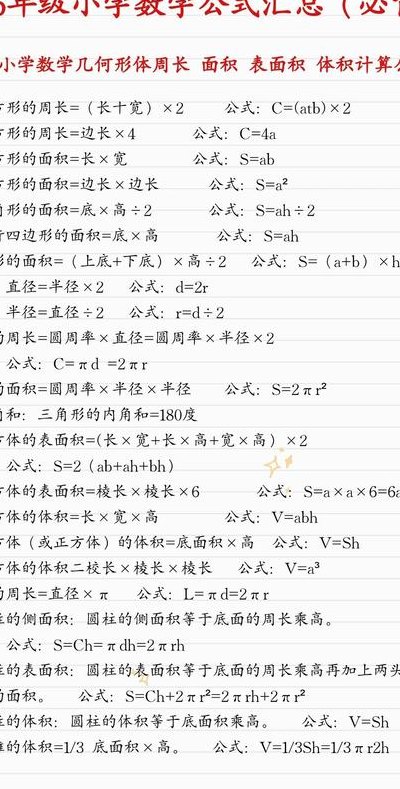 年级小学数学公式汇总（必
小学数学几何形体周长 面积 表面积 体积计算
形的周长=（长十宽）×2 公式: C=(atb)×2
形的周长=边长×4 公式: C=4a
形的面积=长×宽 公式: S=ab
形的面积=边长×边长 公式: S=a²
形的面积=底×高÷2 公式: S=ah÷2
四边形的面积=底×高 公式: S=ah
的面积=（上底+下底）×高÷2 公式: S=（a+b）×h
直径=半径×2 公式: d=2r
半径=直径÷2 公式: r=d÷2
周长=圆周率×直径=圆周率×半径×2
公式: C=πd =2πr
面积=圆周率×半径×半径 公式: S=2πr²
和: 三角形的内角和=180度
体的表面积=(长×宽+长×高+宽×高）×2
公式: S=2（ab+ah+bh）
体的表面积=棱长×棱长×6 公式: S=a×a×6=6a
体的体积=长×宽×高 公式: V=abh
体（或正方体）的体积=底面积×高 公式: V=Sh
体的体积二校长×棱长×棱长 公式: V=a³
周长=直径×π 公式: L=πd=2πr
的侧面积: 圆柱的侧面积等于底面的周长乘高。
公式: S=Ch=πdh=2πrh
的表面积: 圆柱的表面积等于底面的周长乘高再加上两头
面积。 公式: S=Ch+2πr²=2πrh+2πr²
的体积: 圆柱的体积等于底面积乘高。 公式: V=Sh
的体积=1/3 底面积×高。 公式: V=1/3Sh=1/3πr2h